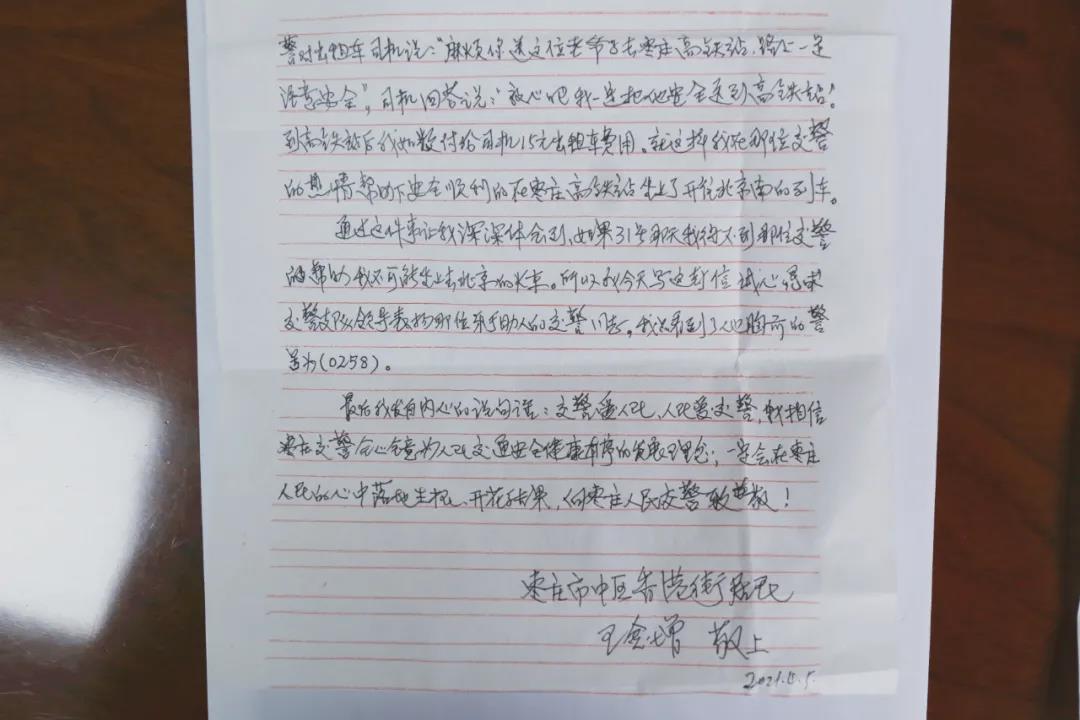 警对出租车司机说:"麻烦你送这位老爷子去枣庄高铁站,路上一定
注意安全",司机回答说:"放心吧我一定把他安全送到高铁站!
到高铁站后我如数付给司机15元出租车费用。就这样我在那位交警
的热情帮助下安全顺利的在枣庄高铁站坐上了开往北京南的列车。
通过这件事让我深深体会到,如果31号那天我得不到那位交警
的帮助我不可能坐上去北京的火车。所以我今天写这封信诚心恳求
交警支队领导表扬那位乐于助人的交警同志。我只看到了他胸前的警
号为(0258)。
最后我发自内心的说句话:交警爱人民,人民爱交警,我相信
枣庄交警全心全意为人民交通安全健康有序的发展理念,一定会在枣庄
人民的心中落地生根、开花结果,向枣庄人民交警致敬!
枣庄市中区香港街居民
王金增 敬上
2021. .5.